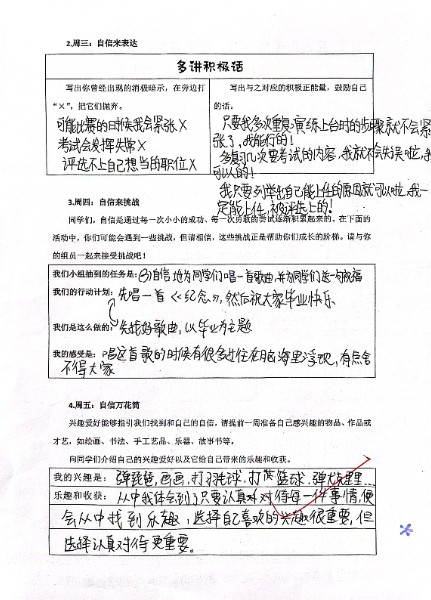 2.周三：自信来表达
多讲积极话
写出你曾经出现的消极暗示，在旁边打
“×”，把它们抛弃。
可能比赛的时候我会紧张×
考试会发挥失常×
评选不上自己想当的职位×
写出与之对应的积极正能量，鼓励自己
的话。
只要我多次重复演练上台时的步骤就不会紧
张了，我能行的！
多复习几次要考试的内容，我就不会失误啦，我
可以的！
我只要列举出自己能上任的原因就可以啦，我一
定能上任，被评选上的！
3.周四：自信来挑战
同学们，自信是通过每一次小小的成功、每一次勇敢的尝试逐渐积累起来的。在下面的
活动中，你们可能会遇到一些挑战，但请相信，这些挑战正是帮助你们成长的阶梯。请与你
的组员一起来接受挑战吧！
我们小组抽到的任务是：自信地为同学们唱一首歌曲，并为同学们送一句祝福
我们的行动计划：先唱一首《纪念》，然后祝大家毕业快乐
我们是这么做的：先找好歌曲，以毕业为主题
我的感受是：唱这首歌的时候有很多过往在脑海里浮现，有点舍
不得大家
4.周五：自信万花筒
兴趣爱好能够指引我们找到和自己的自信。请提前一周准备自己感兴趣的物品、作品或
才艺，如绘画、书法、手工艺品、乐器、故事书等。
向同学们介绍自己的兴趣爱好以及它给自己带来的乐趣和收获。
我的兴趣是：弹琵琶，画画，打羽毛球，打篮球，弹尤克里里…
乐趣和收获：从中我体会到了只要认真对待每一件事情，便
会从中找到乐趣，选择自己喜欢的兴趣很重要，但
选择认真对待更重要。